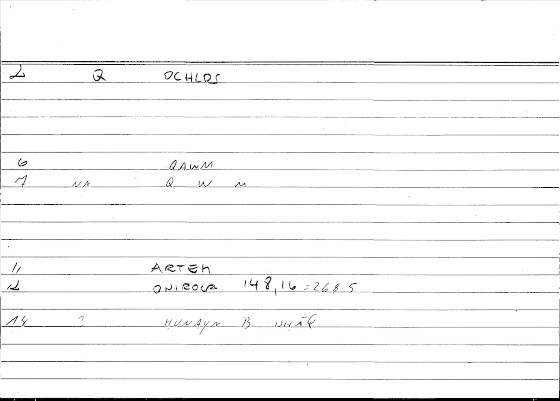 2 Q OCHLOS
6 QAWM
7 NA Q W M
11 ARTEM
12 ONIROCR 148,16 = 268.5
14 ? HUNAYN B